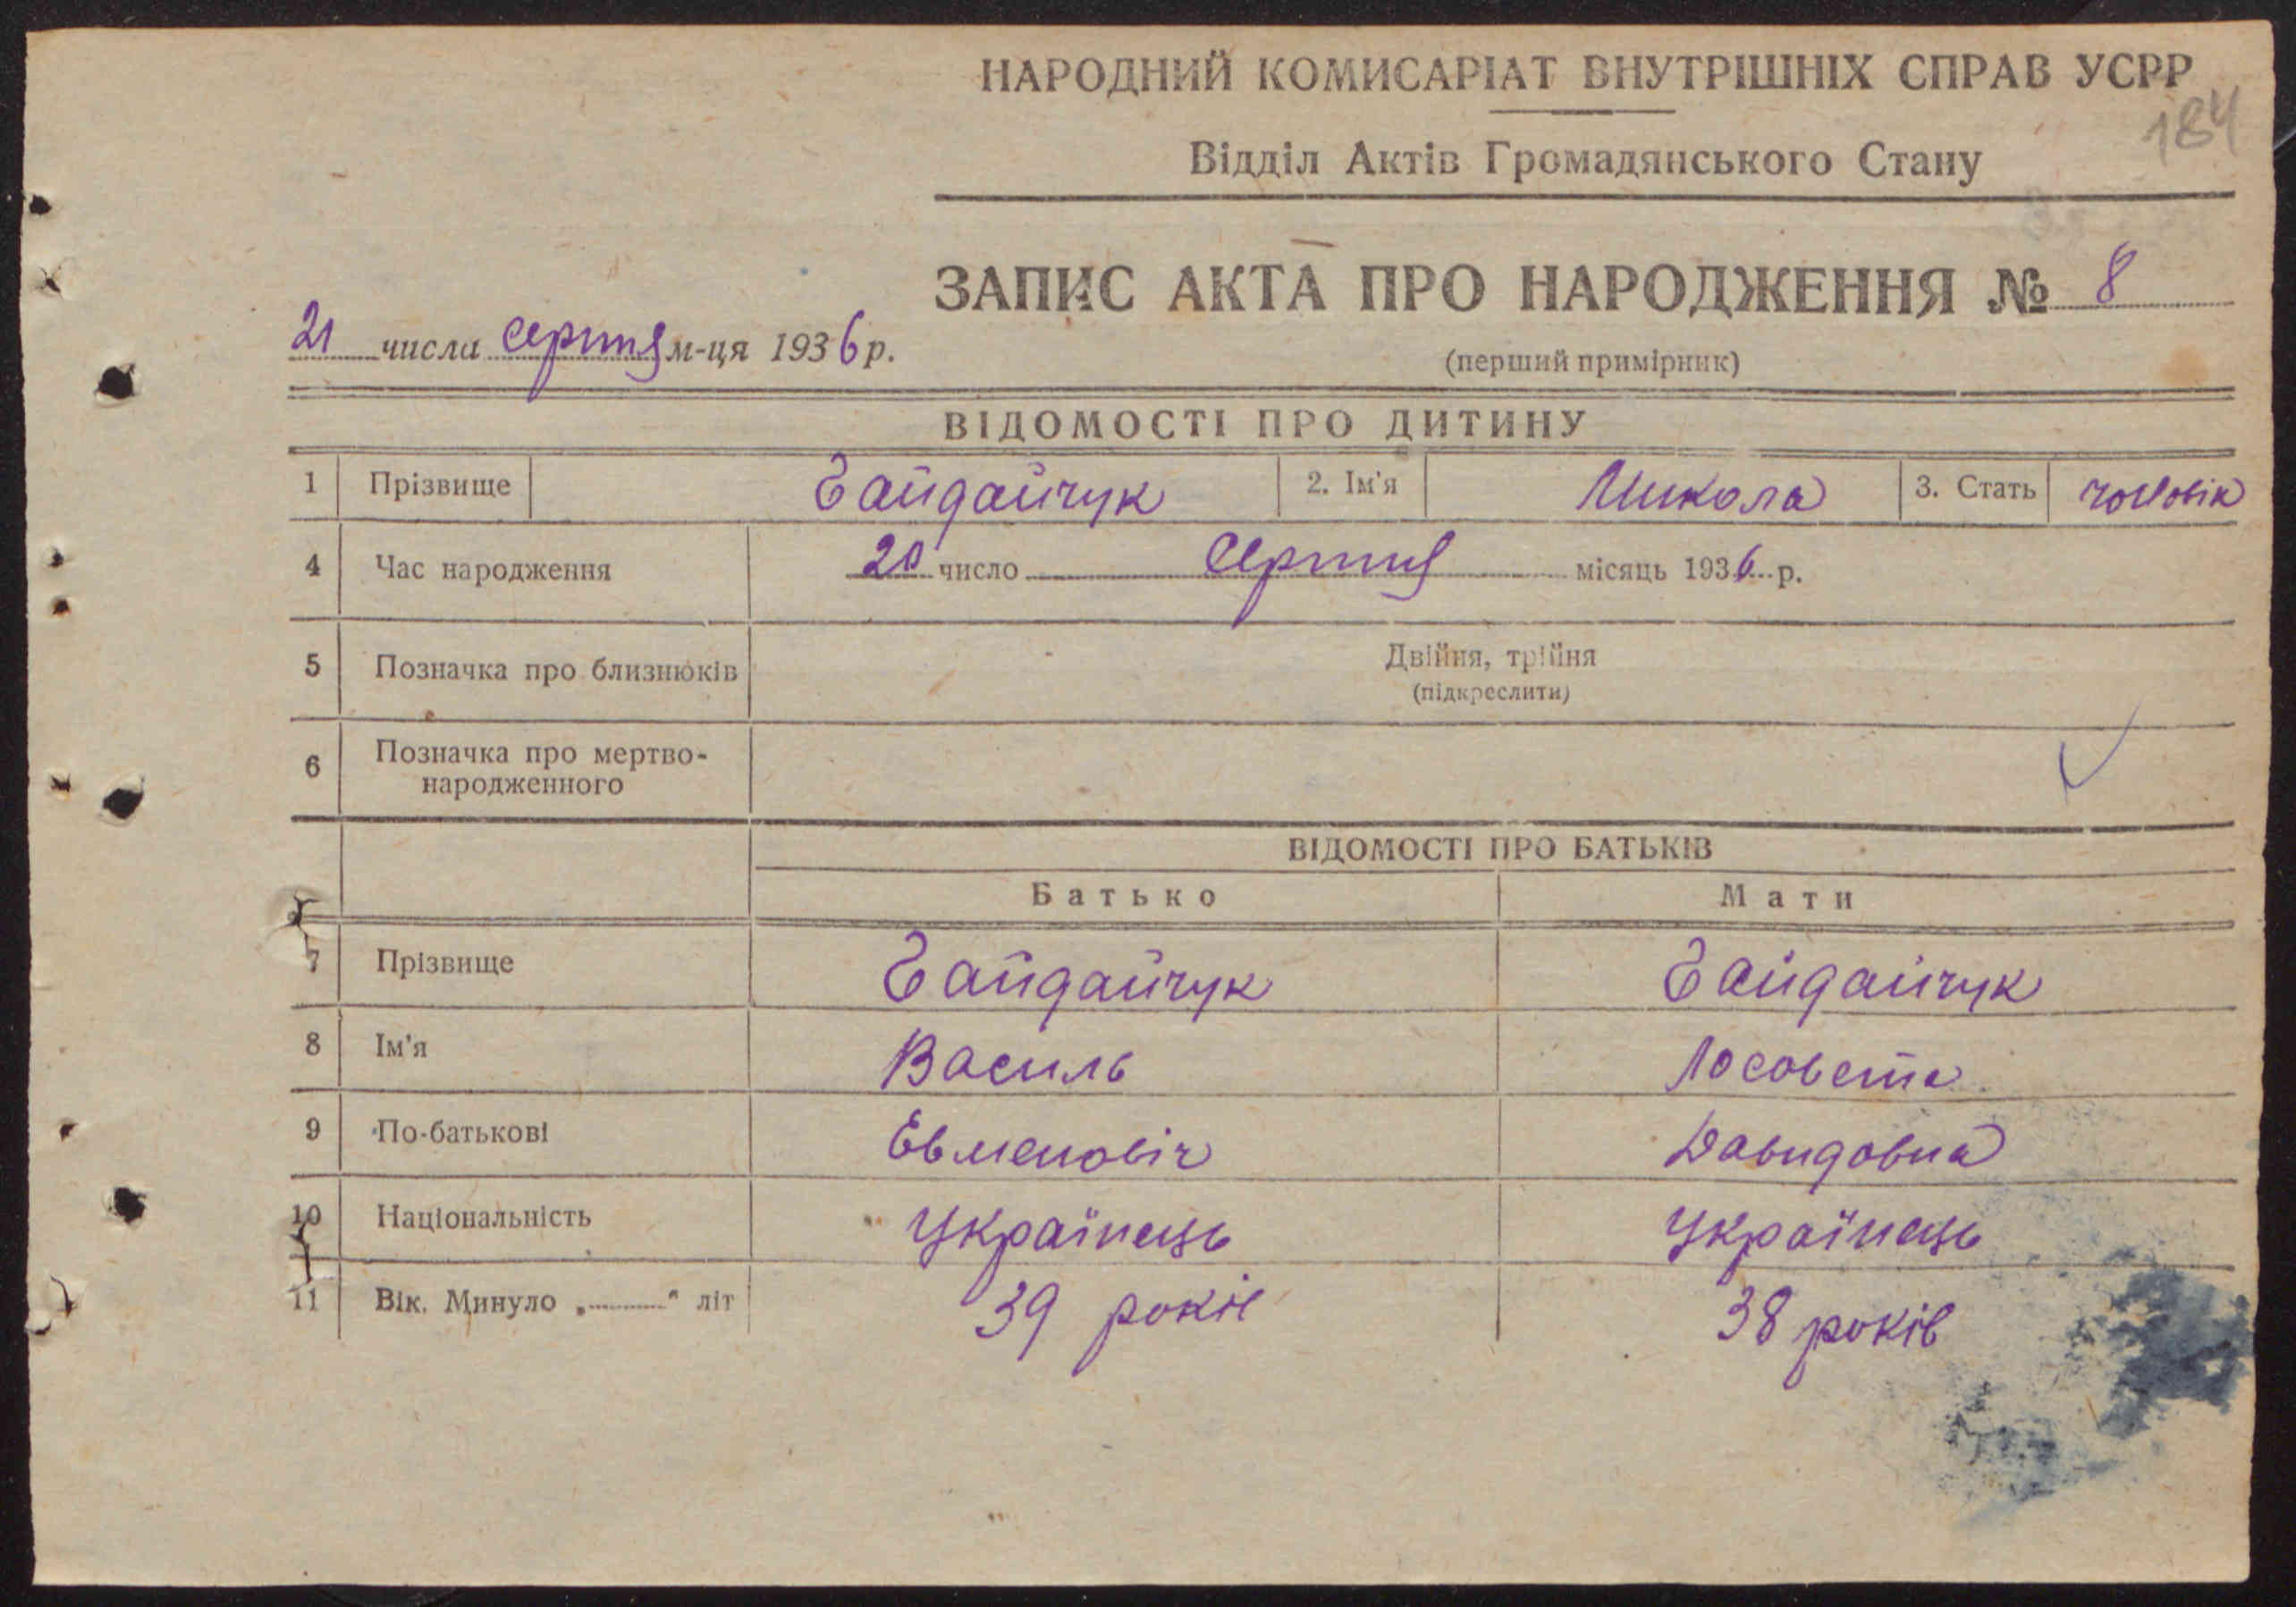 НАРОДНИЙ КОМИСАРІАТ ВНУТРІШНІХ СПРАВ УСРР
184
Відділ Актів Громадянського Стану
ЗАПИС АКТА ПРО НАРОДЖЕННЯ № 8
21 числа серпня м-ця 1936 р.
(перший примірник)
ВІДОМОСТІ ПРО ДИТИНУ
1 Прізвище Гайдайчук 2. Ім'я Микола 3. Стать чоловік
4 Час народження 20 число серпня місяць 1936 р.
5 Позначка про близнюків Двійня, трійня
(підкреслити)
6 Позначка про мертво-
народженного
ВІДОМОСТІ ПРО БАТЬКІВ
Батько Мати
7 Прізвище Гайдайчук Гайдайчук
8 Ім'я Василь Лосовета
9 По-батькові Евменовіч Давидовна
10 Національність Українець Українець
11 Вік. Минуло „ “ літ 39 років 38 років